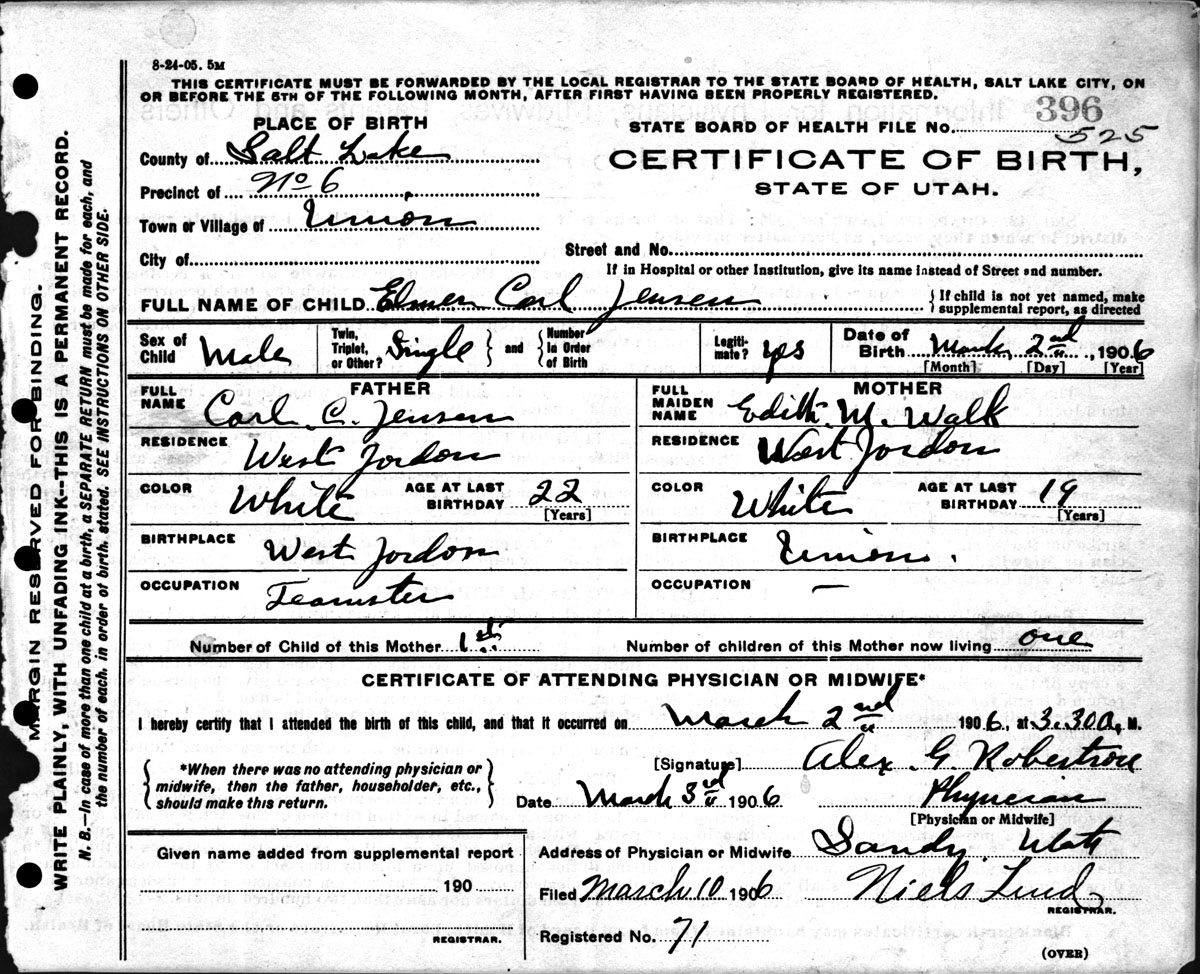 8-24-05. 5M
THIS CERTIFICATE MUST BE FORWARDED BY THE LOCAL REGISTRAR TO THE STATE BOARD OF HEALTH, SALT LAKE CITY, ON
OR BEFORE THE 5TH OF THE FOLLOWING MONTH, AFTER FIRST HAVING BEEN PROPERLY REGISTERED.
396
PLACE OF BIRTH
STATE BOARD OF HEALTH FILE NO. 525
County of Salt Lake
CERTIFICATE OF BIRTH,
Precinct of No 6
STATE OF UTAH.
Town or Village of Union
City of
Street and No.
If in Hospital or other Institution, give its name instead of Street and number.
FULL NAME OF CHILD Elmer Carl Jensen
{ If child is not yet named, make
supplemental report, as directed
Sex of Child Male
Twin, Triplet, or Other? Single } and { Number in Order of Birth
Legitimate? yes
Date of Birth March 2nd, 1906
[Month] [Day] [Year]
FATHER
FULL NAME Carl C. Jensen
RESIDENCE West Jordon
COLOR White AGE AT LAST BIRTHDAY 22
[Years]
BIRTHPLACE West Jordon
OCCUPATION Teamster
MOTHER
FULL MAIDEN NAME Edith M. Walk
RESIDENCE West Jordon
COLOR White AGE AT LAST BIRTHDAY 19
[Years]
BIRTHPLACE Union.
OCCUPATION —
Number of Child of this Mother 1st
Number of children of this Mother now living one
CERTIFICATE OF ATTENDING PHYSICIAN OR MIDWIFE*
I hereby certify that I attended the birth of this child, and that it occurred on March 2nd 1906, at 3.30 A. M.
{ *When there was no attending physician or
midwife, then the father, householder, etc.,
should make this return. }
[Signature] Alex. G. Robertson
Date March 3rd 1906
Physician
[Physician or Midwife]
Given name added from supplemental report
190
REGISTRAR.
Address of Physician or Midwife Sandy. Utah
Filed March 10 1906 Niels Lind
REGISTRAR.
Registered No. 71
(OVER)
MARGIN RESERVED FOR BINDING.
WRITE PLAINLY, WITH UNFADING INK--THIS IS A PERMANENT RECORD.
N. B.—In case of more than one child at a birth, a SEPARATE RETURN must be made for each, and
the number of each, in order of birth, stated. SEE INSTRUCTIONS ON OTHER SIDE.